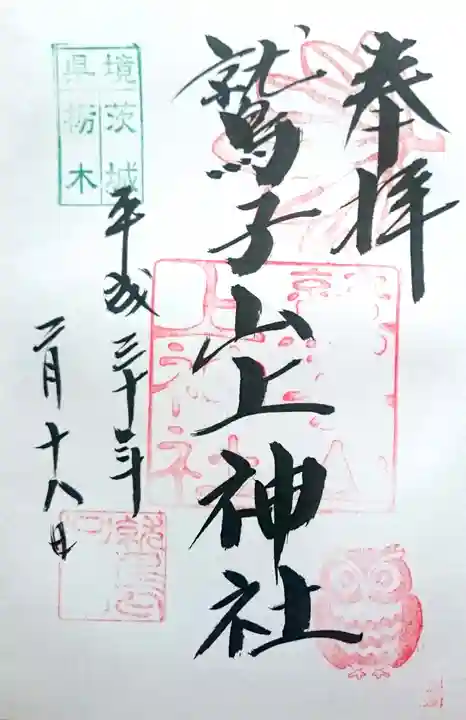 奉拝
鷲子山上神社
茨城
栃木
県境
平成三十年
二月十八日